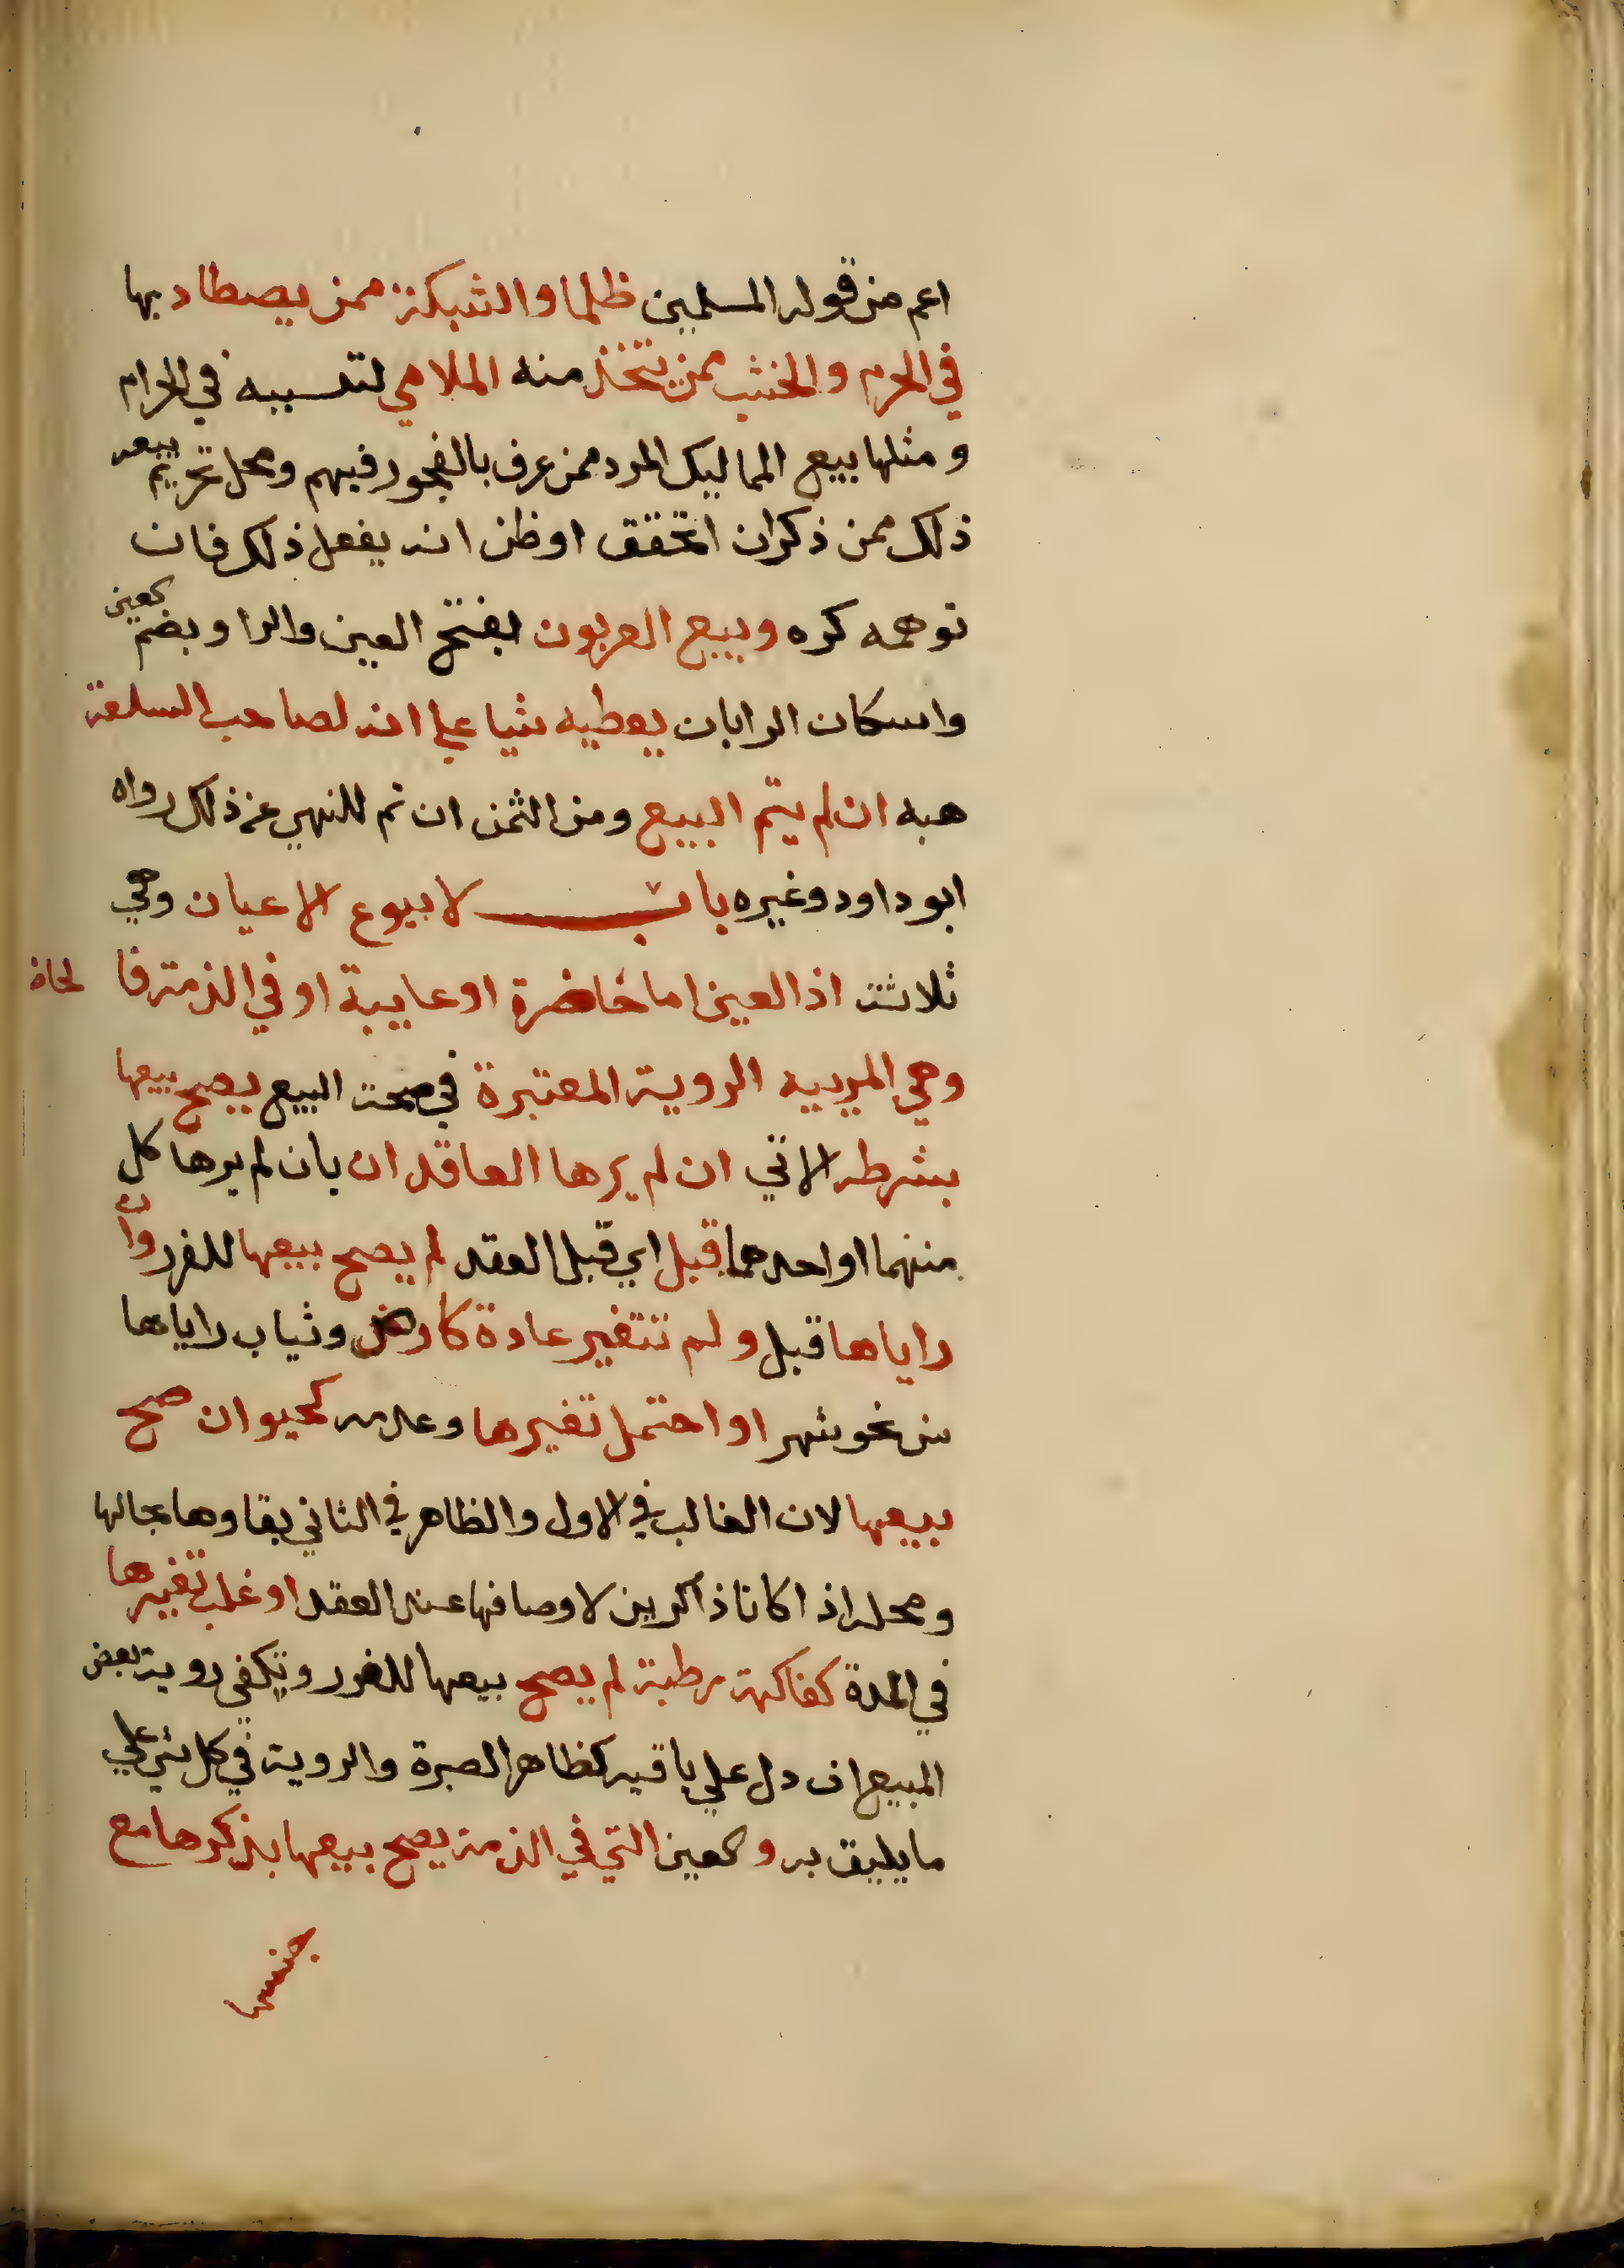 اعم من قوله المسلمين ظلما والشبكة ممن يصطاد بها
في الحرم والخشب ممن يتخذ منه الملاهي لتسببه في الحرام
ومثلها بيع المماليك المرد ممن عرف بالفجور فيهم ومحل تحريم بيعه
ذلك ممن ذكر ان اتحقق او ظن انه يفعل ذلك فان
توهمه كره وبيع العربون بفتح العين والرا وبضم العين
واسكان الرا بان يعطيه شيا على انه لصاحب السلعة
هبه ان لم يتم البيع ومن الثمن ان تم للنهي عن ذلك رواه
ابو داود وغيره باب لا بيوع الاعيان وهي
ثلاثة اذ العين اما حاضرة او غايبة او في الذمة فا لحاة
وهي المرييه الروية المعتبرة في صحة البيع يصح بيعها
بشرطه الاتي ان لم يرها العاقدان بان لم يرها كل
منهما او احدهما قبل اي قبل العقد لم يصح بيعها للغرر وان
راياها قبل ولم تتغير عادة كارض وثياب راياها
من نحو شهر او احتمل تغيرها وعدمه كحيوان صح
بيعها لان الغالب في الاول والظاهر في الثاني بقاوها بحالها
ومحله اذا كانا ذاكرين لاوصافها عند العقد او غلب تغيرها
في المدة كفاكهة رطبة لم يصح بيعها للغرر وتكفي روية بعض
المبيع ان دل على باقيه كظاهر الصبرة والروية في كل شي على
ما يليق به والعين التي في الذمة يصح بيعها بذكرها مع
جنسها